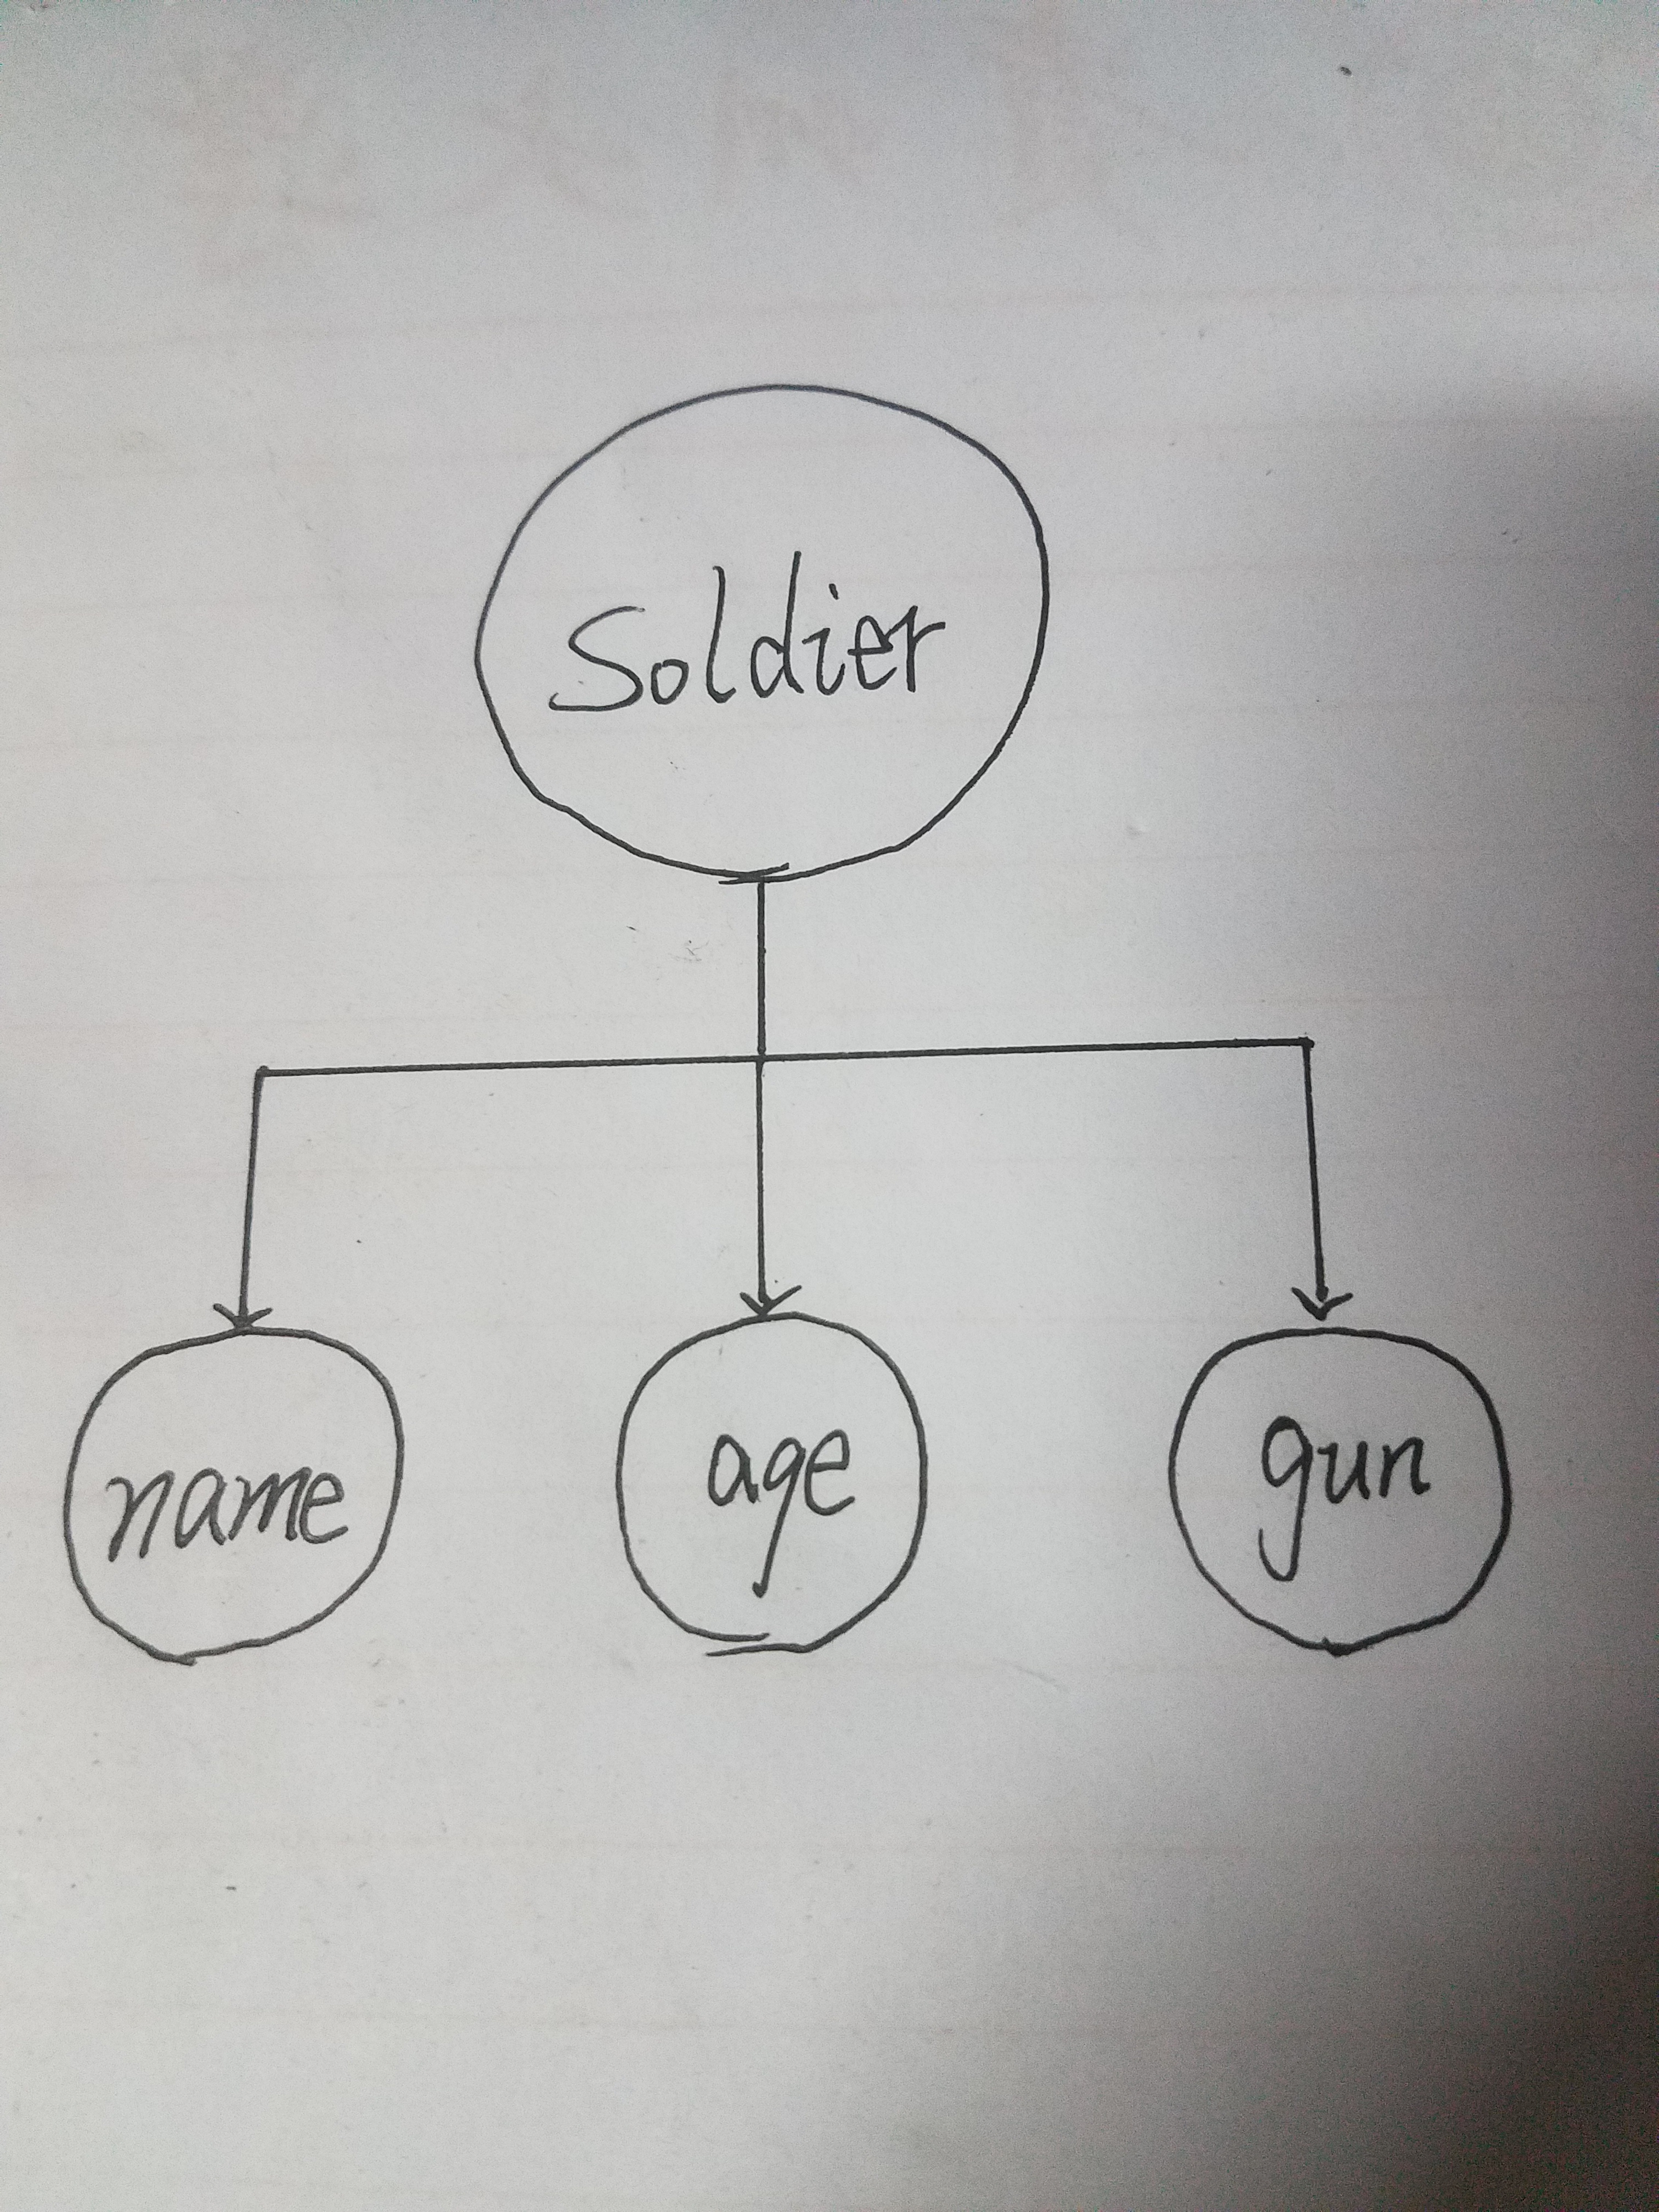 Soldier
name age gun